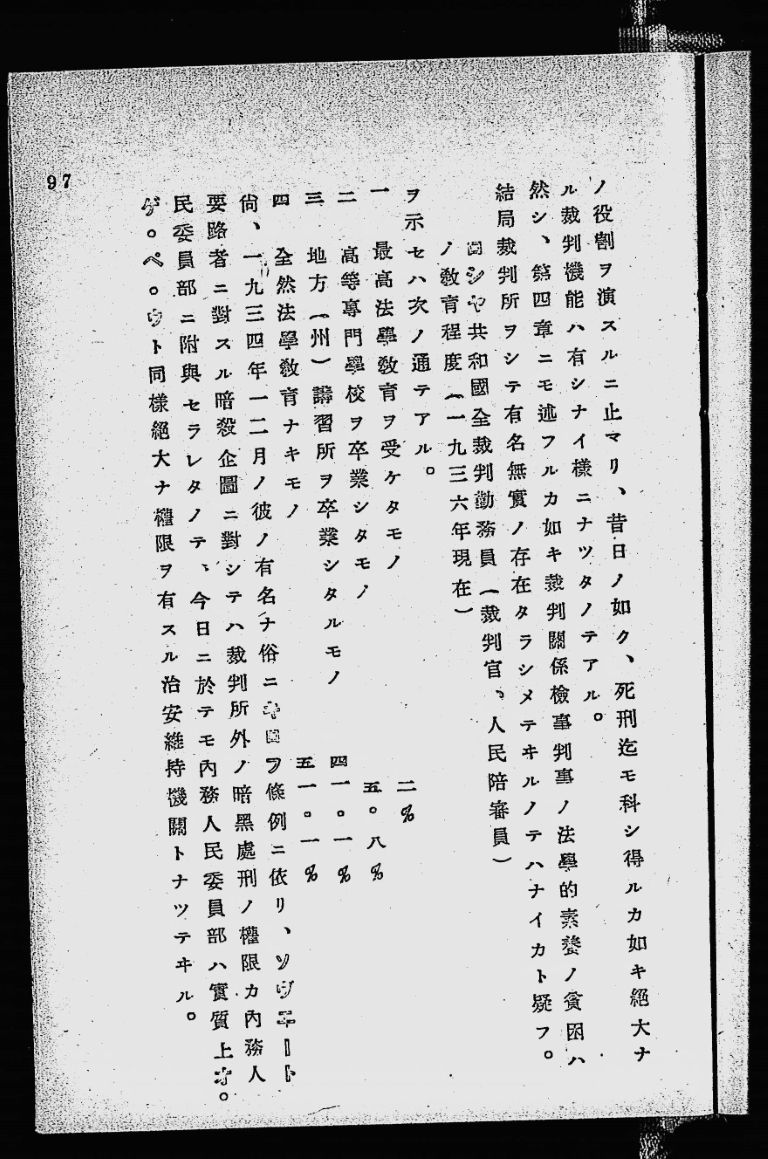 ノ役割ヲ演スルニ止マリ、昔日ノ如ク、死刑迄モ科シ得ルカ如キ絕大ナ
ル裁判機能ハ有シナイ樣ニナツタノテアル。
然シ、第四章ニモ述フルカ如キ裁判關係檢事判事ノ法學的素養ノ貧困ハ
結局裁判所ヲシテ有名無實ノ存在タラシメテキルノテハナイカト疑フ。
ロシヤ共和國全裁判勤務員(裁判官、人民陪審員)
ノ敎育程度(一九三六年現在)
ヲ示セハ次ノ通テアル。
一 最高法學敎育ヲ受ケタモノ 二%
二 高等專門學校ヲ卒業シタモノ 五。八%
三 地方(州)講習所ヲ卒業シタルモノ 四一。一%
四 全然法學敎育ナキモノ 五一。一%
尙、一九三四年一二月ノ彼ノ有名ナ俗ニキロフ條例ニ依リ、ソヴエート
要路者ニ對スル暗殺企圖ニ對シテハ裁判所外ノ暗黑處刑ノ權限カ內務人
民委員部ニ附與セラレタノテ、今日ニ於テモ內務人民委員部ハ實質上オ。
ゲ。ペ。ウト同樣絕大ナ權限ヲ有スル治安維持機關トナツテヰル。
97